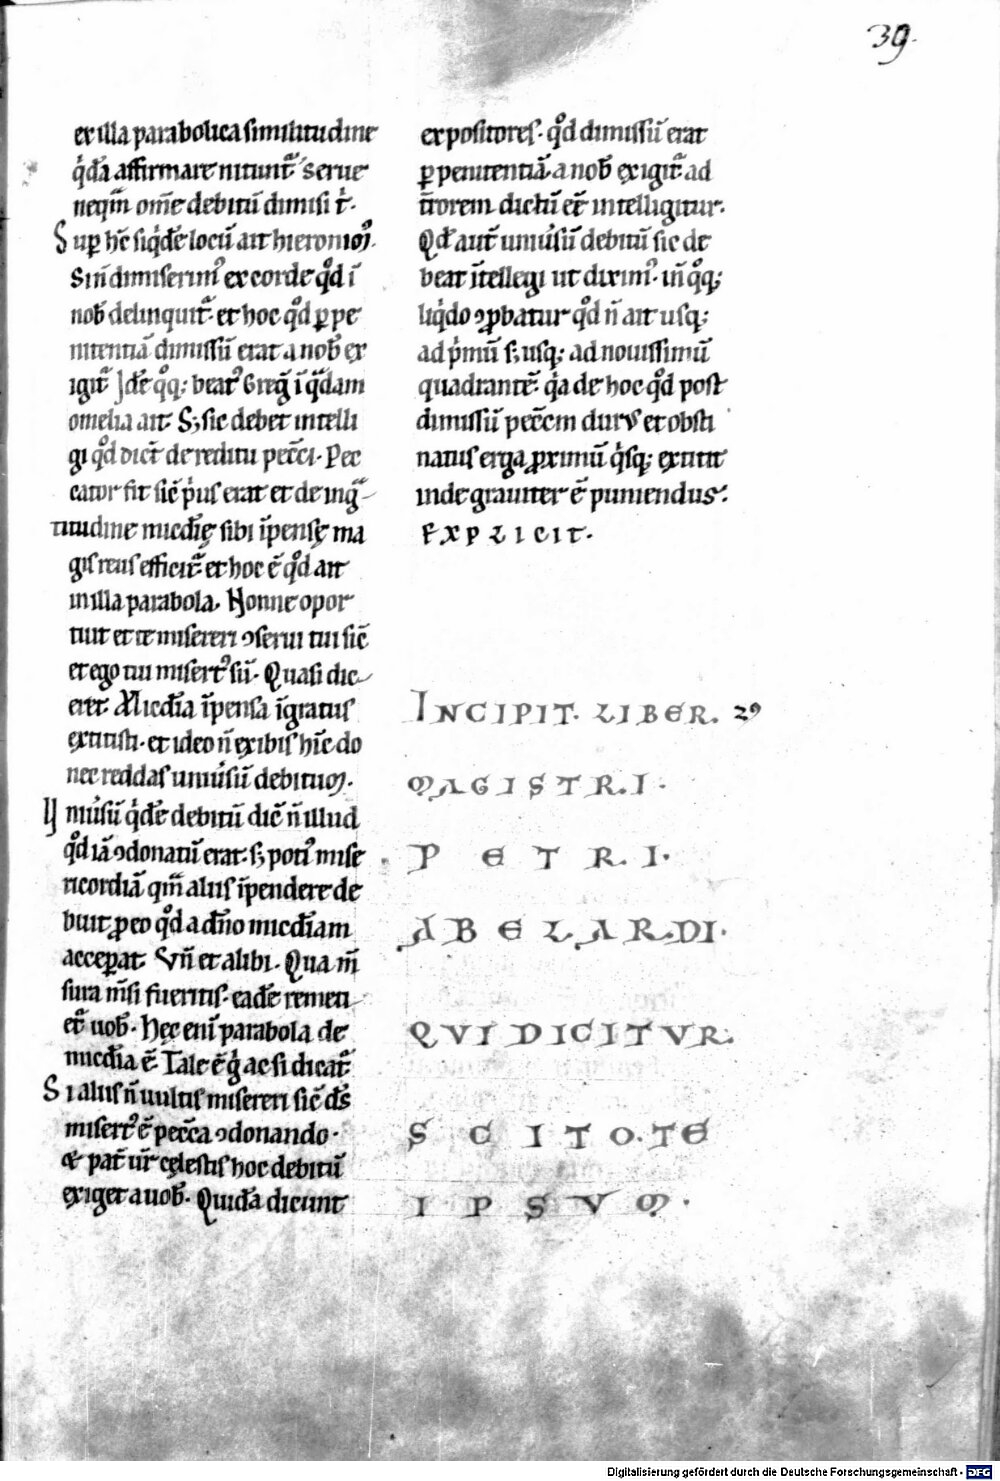 39.
ex illa parabolica similitudine
q̇dā affirmare nitunt᷑ Serue
neqm̄ om̄e debitū dimisi t̄.
Sup h̄c siq̇dē locū ait hieronim᷒.
Si n̄ dimiserim᷒ ex corde qd̊ ī
nob̄ delinquit᷑. et hoc qd̊ ꝑ pe
nitentiā dimissū erat a nob̄ ex
igit᷑ Idē q̊q; beat᷒ Greḡ ī q̄dam
omelia ait. S; sic debet intelli
gi qd̊ dict̄ de reditu pecc̄i. Pec
cator fit sic̄ p̓us erat et de ing̃
titudine mic̄die sibi īpense ma
gis reus efficit᷑ et hoc ē qd̊ ait
in illa parabola. Nonne opor
tuit et te misereri ꝯserui tui sic̄
et ego tui misert᷒ sū. Quasi dic
eret. Mic̄dia īpensa īgratus
extitisti. et ideo n̄ exibis hīc do
nec reddas uniu̓sū debitum.
Uniu̓sū q̇dē debitū dic̄ n̄ illud
qd̊ iā ꝯdonatū erat. s; poti᷒ mise
ricordiā qm̄ aliis īpendere de
buit ꝓ eo qd̊ a dn̄o mic̄diam
acceꝑat. Vn̄ et alibi. Qua m̄
sura m̄si fueritis. eadē remeti
et᷑ uob̄. Hec enī parabola de
mic̄dia ē. Tale ē g̊ ac si dicat᷑
Si aliis n̄ uultis misereri sic̄ ds̄
misert᷒ ē pecc̄a ꝯdonando.
& pat̄ ur̄ celestis hoc debitū
exiget a uob̄. Quidā dicunt
expositores. qd̊ dimissū erat
ꝑ penitentiā a nob̄ exigit᷑ ad
t̄rorem dictū eē intelligitur.
Qd̄ aut̄ uniu̓sū debitū sic de
beat ītellegi ut dixim᷒. in̄ q̊q;
liq̇do ꝯꝓbatur qd̊ n̄ ait usq;
ad p̓mū s; usq; ad nouissimū
quadrantē. q̇a de hoc qd̊ post
dimissū pecc̄m durus et obsti
natus erga ꝓximū q̇sq; extitit
inde grauiter ē puniendus.
EXPLICIT.
INCIPIT. LIBER.
MAGISTRI.
PETRI.
ABELARDI.
QVI DICITVR.
SCITO. TE
IPSVM.
Digitalisierung gefördert durch die Deutsche Forschungsgemeinschaft - DFG